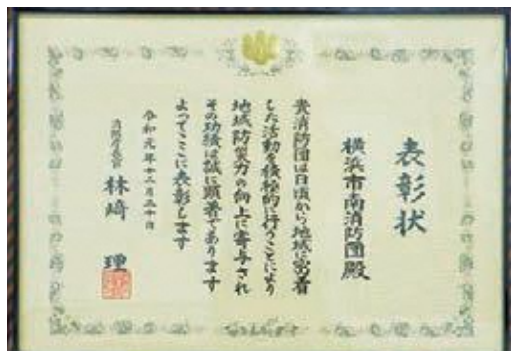 表彰状
横浜市南消防団殿
貴消防団は日頃から地域に密着
した活動を積極的に行うことにより
地域防災力の向上に寄与され
その功績は誠に顕著であります
よってここに表彰します
令和元年十二月二十日
消防庁長官 林﨑 理